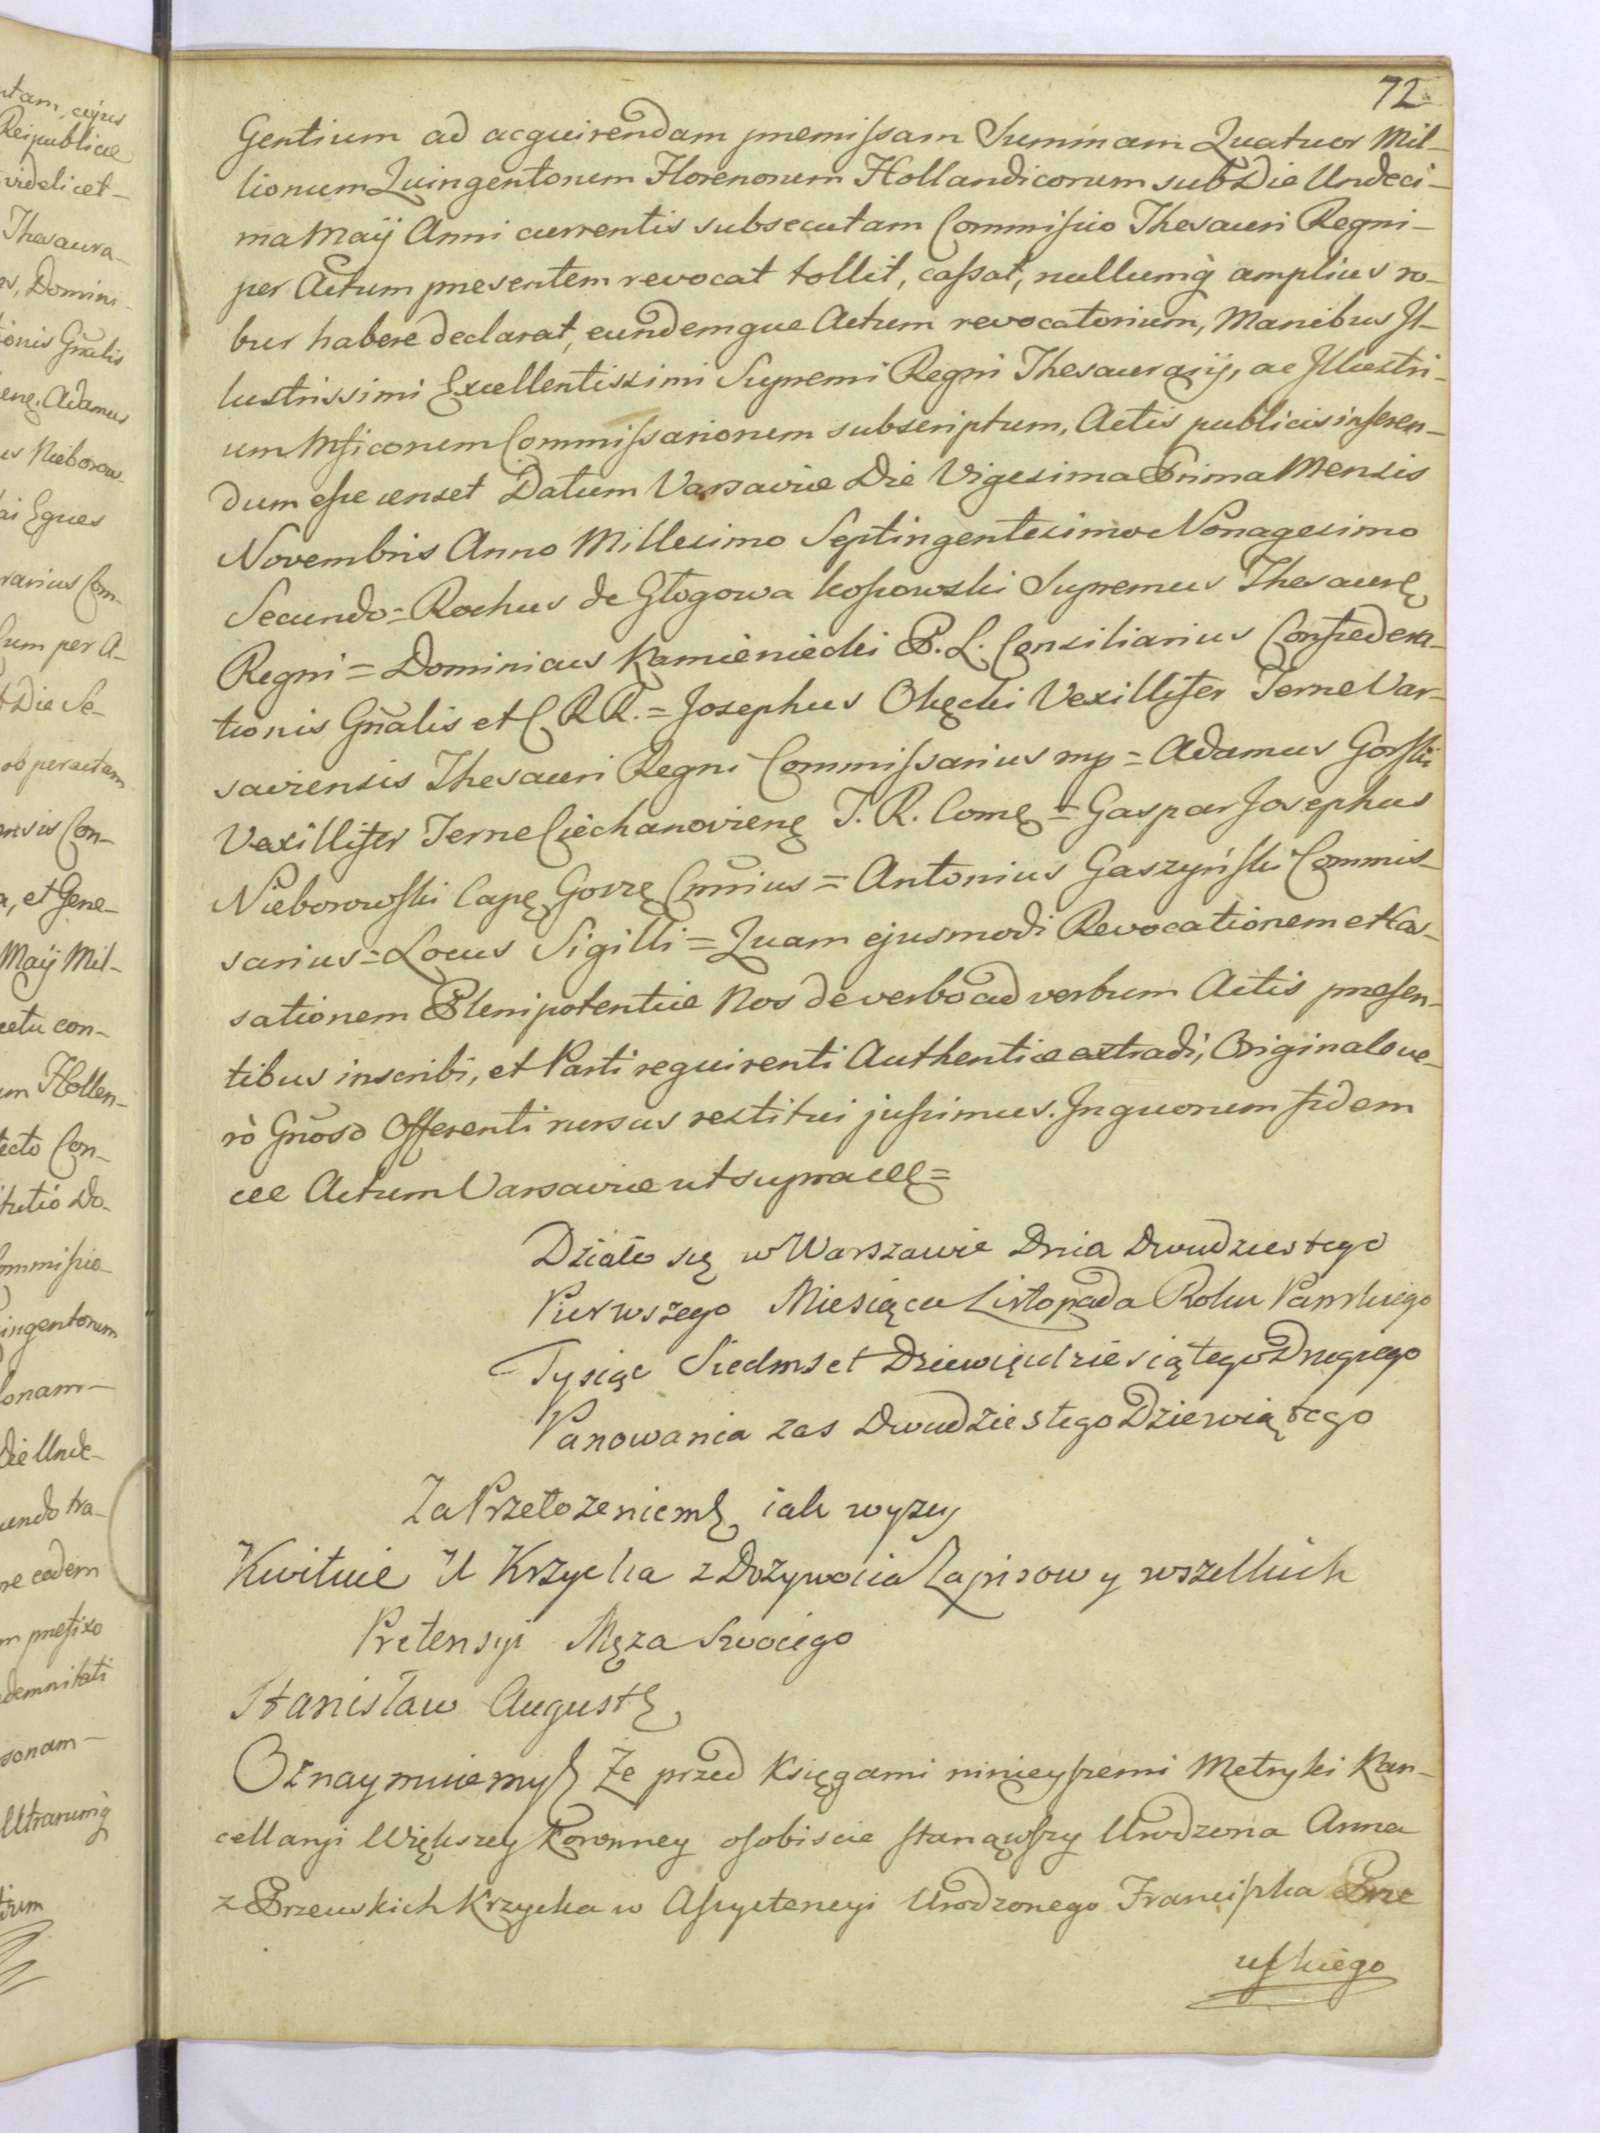 72
Gentium ad acquirendam præmissam Summam Quatuor Mil-
lionum Quingentorum Florenorum Hollandicorum sub Die Undeci-
ma Maÿ Anni currentis subsecutam Commissio Thesauri Regni
per Actum præsentem revocat tollit, cassat, nullumq̀ amplius ro-
bur habere declarat, eundemque Actum revocatorium, Manibus Il-
lustrissimi Excellentissimi Supremi Regni Thesaurarij, ac Illustri-
um Mficorum Commissariorum subscriptum, Actis publicis inseren-
dum esse censet Datum Varsaviæ Die Vigesima Prima Mensis
Novembris Anno Millesimo Septingentesimo Nonagesimo
Secundo = Rochus de Głogowa Kossowski Supremus Thesaur.
Regni = Dominicus Kamieniecki P. L. Consiliarius Confœdera-
tionis Gñalis et C. R. R. = Josephus Okęcki Vexillifer Terræ Var-
saviensis Thesauri Regni Commissarius mp = Adamus Gorski
Vexillifer Terræ Ciechanovien. T. R. Com. = Gaspar Josephus
Nieborowski Cap. Gorz. Cmrius = Antonius Gaszyński Commis-
sarius = Locus Sigilli = Quam ejusmodi Revocationem et Cas-
sationem Plenipotentiæ Nos de verbo ad verbum Actis præsen-
tibus inscribi, et Parti requirenti Authenticæ extradi, Originale ve-
rò Gñoso Offerenti rursus restitui jussimus. In quorum fidem
&c Actum Varsaviæ ut supra &c =
Działo się w Warszawie Dnia Dwudziestego
Pierwszego Miesiąca Listopada Roku Pańskiego
Tysiąc Siedmset Dziewięćdziesiątego Drugiego
Panowania zas Dwudziestego Dziewiątego
Za Przełozeniem iak wyzey
Kwituie U Krzycka z Dozywocia Zapisow y wszelkich
Pretensyi Męza Swoiego
Stanisław August
Oznaymuiemy Że przed Księgami ninieyszemi Metryki Kan-
cellaryi Większey Koronney osobiscie stanąwszy Urodzona Anna
z Przeuskich Krzycka w Assystencyi Urodzonego Franciszka Prze
uskiego